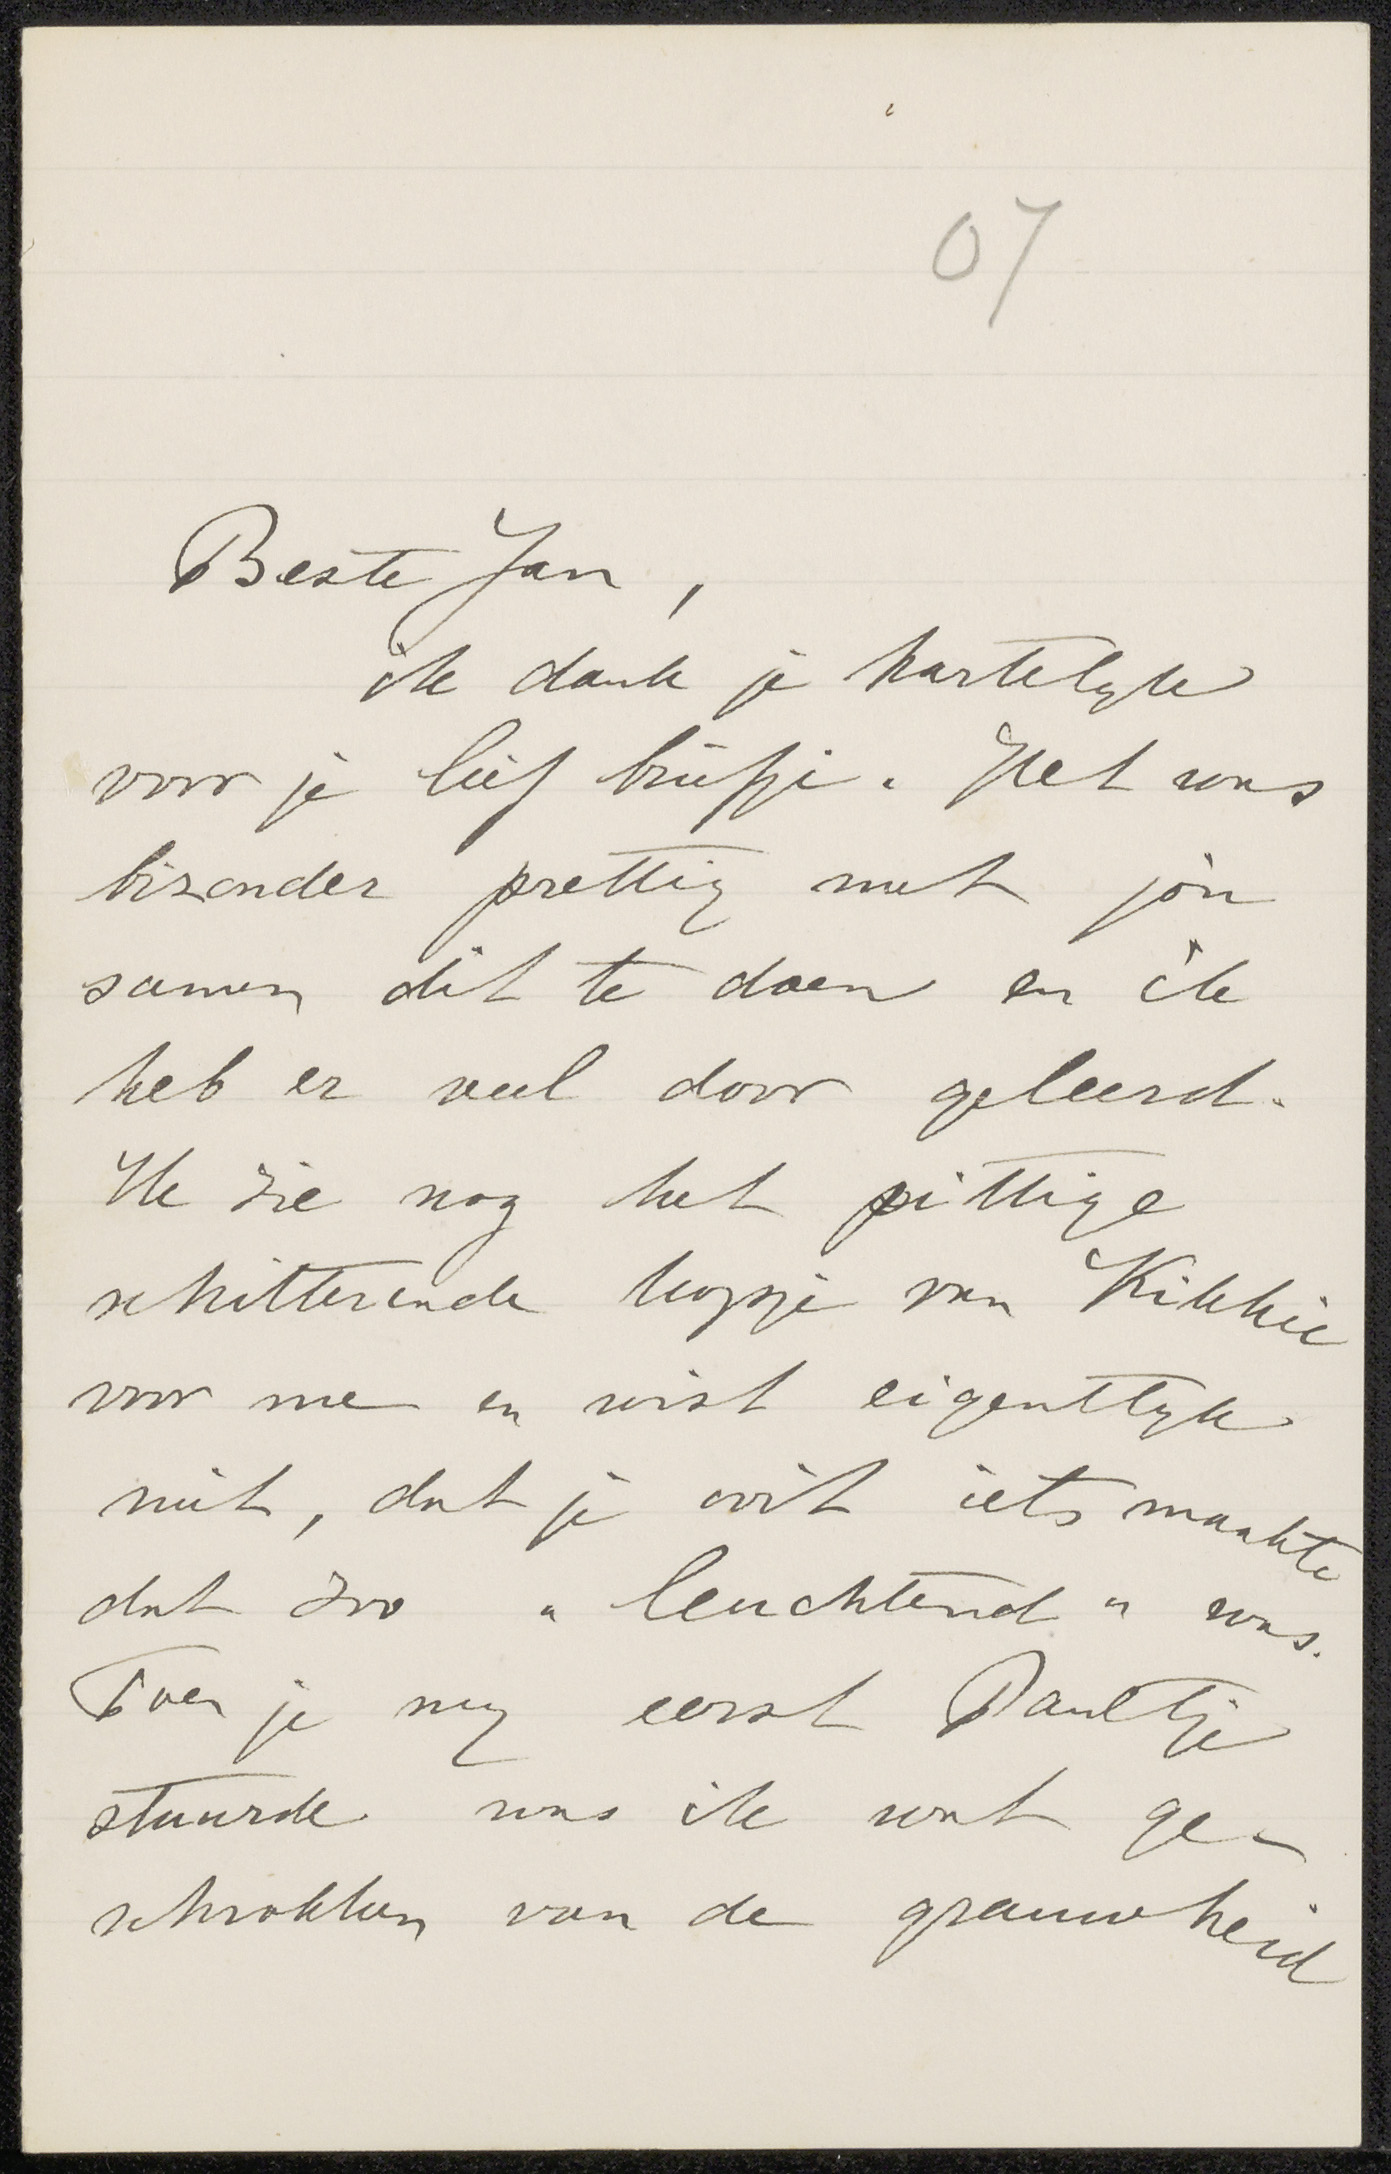 07
Beste Jan,
ik dank je hartelyk
voor je lief briefje. Het was
bizonder prettig met jou
samen dit te doen en ik
heb er veel door geleerd.
Ik zie nog het pittige
schitterende kopje van Kikkie
voor me en wist eigentlyk
niet, dat je ooit iets maakte
dat zoo "leuchtend" was.
Toen je my eerst Paultje
stuurde was ik wat ge-
schrokken van de grauwheid